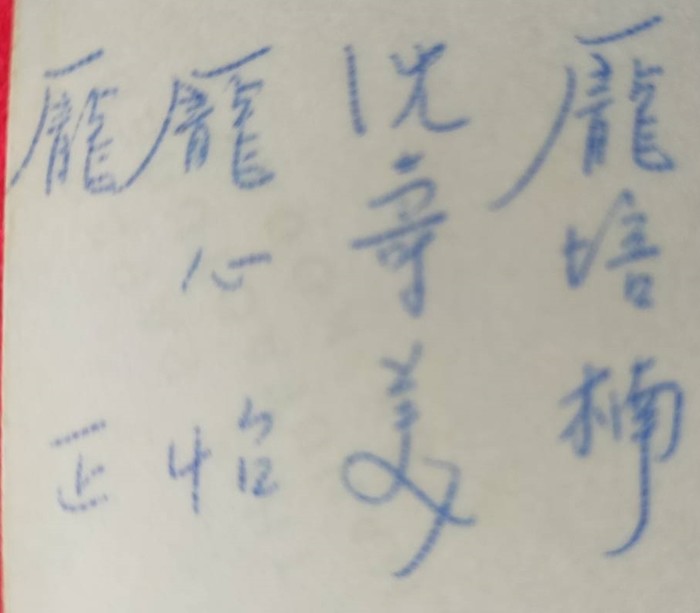 龐培楠
沈美
龐心怡
龐正